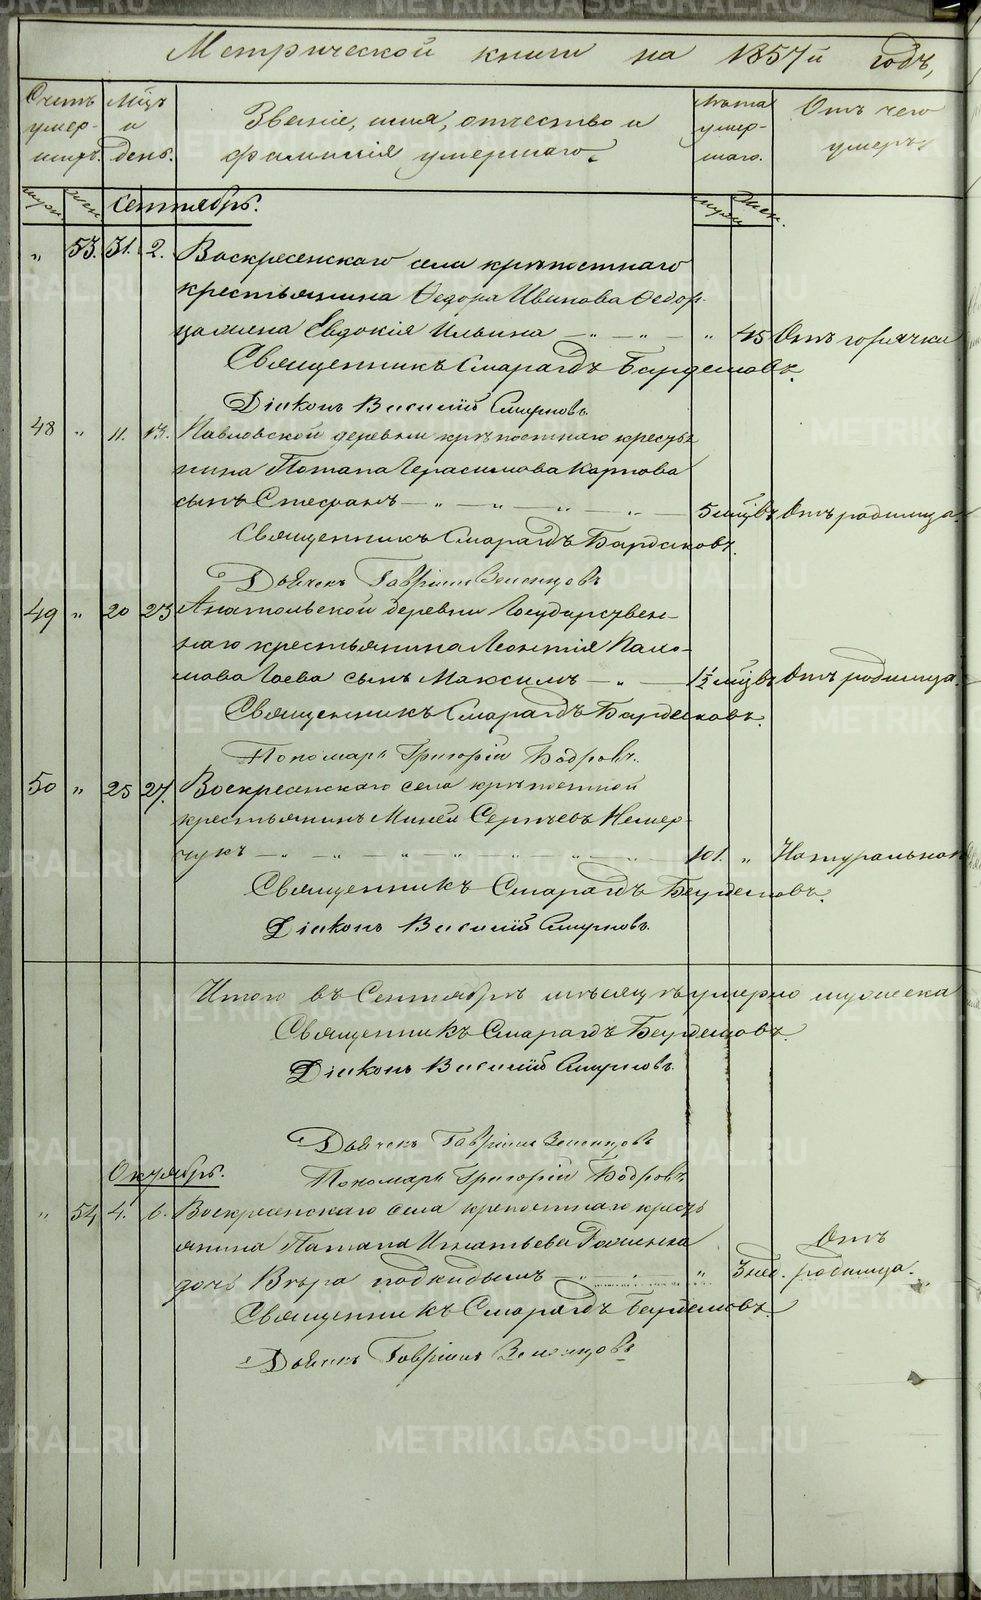 Метрической книги на 1857й годъ,
Счетъ умер- шихъ.
Мѣсцъ и день.
Званіе, имя, отчество и фамилія умершаго.
Лѣта умер- шаго.
Отъ чего умеръ.
муж. жен.
Сентябрь.
муж. жен.
„ 53. 31. 2. Воскресенскаго села крѣпостнаго
крестьянина Ѳедора Иванова Ѳедор-
жена Евдокія Ильина — „ — „ — „ 45 Отъ горячки
Священникъ Смарагдъ
Діаконъ Василій Смирновъ
48 „ 11. 13. Павловской деревни крѣпостнаго кресть
нина Потапа Герасимова Карпова
сынъ Стефанъ — „ — „ — „ — „ — 5 мѣцвъ Отъ родимца.
Священникъ Смарагдъ
Дьячекъ Гавріилъ
49 „ 20 23 Анатольской деревни Государствен-
наго крестьянина Леонтія
сынъ Максимъ — „ — 1½ мѣцвъ Отъ родимца.
Священникъ Смарагдъ
Пономарь Григорій Бодровъ.
50 „ 25 27. Воскресенскаго села крѣпостной
крестьянинъ Миней Сергѣевъ Немер-
чукъ — „ — „ — „ — „ — „ — „ — „ — 101. „ Натуральной
Священникъ Смарагдъ
Діаконъ Василій Смирновъ.
Итого въ Сентябрѣ мѣсяцѣ умерло мужеска
Священникъ Смарагдъ
Діаконъ Василій Смирновъ.
Дьячекъ Гавріилъ
Пономарь Григорій Бодровъ
Октябрь.
„ 54 4. 6. Воскресенскаго села крепостнаго кресть
янина Патапа Игнатьева
дочь Вѣра — „ — „ — „ 3 нед. Отъ родимца.
Священникъ Смарагдъ
Дьячекъ Гавріилъ
METRIKI.GASO-URAL.RU